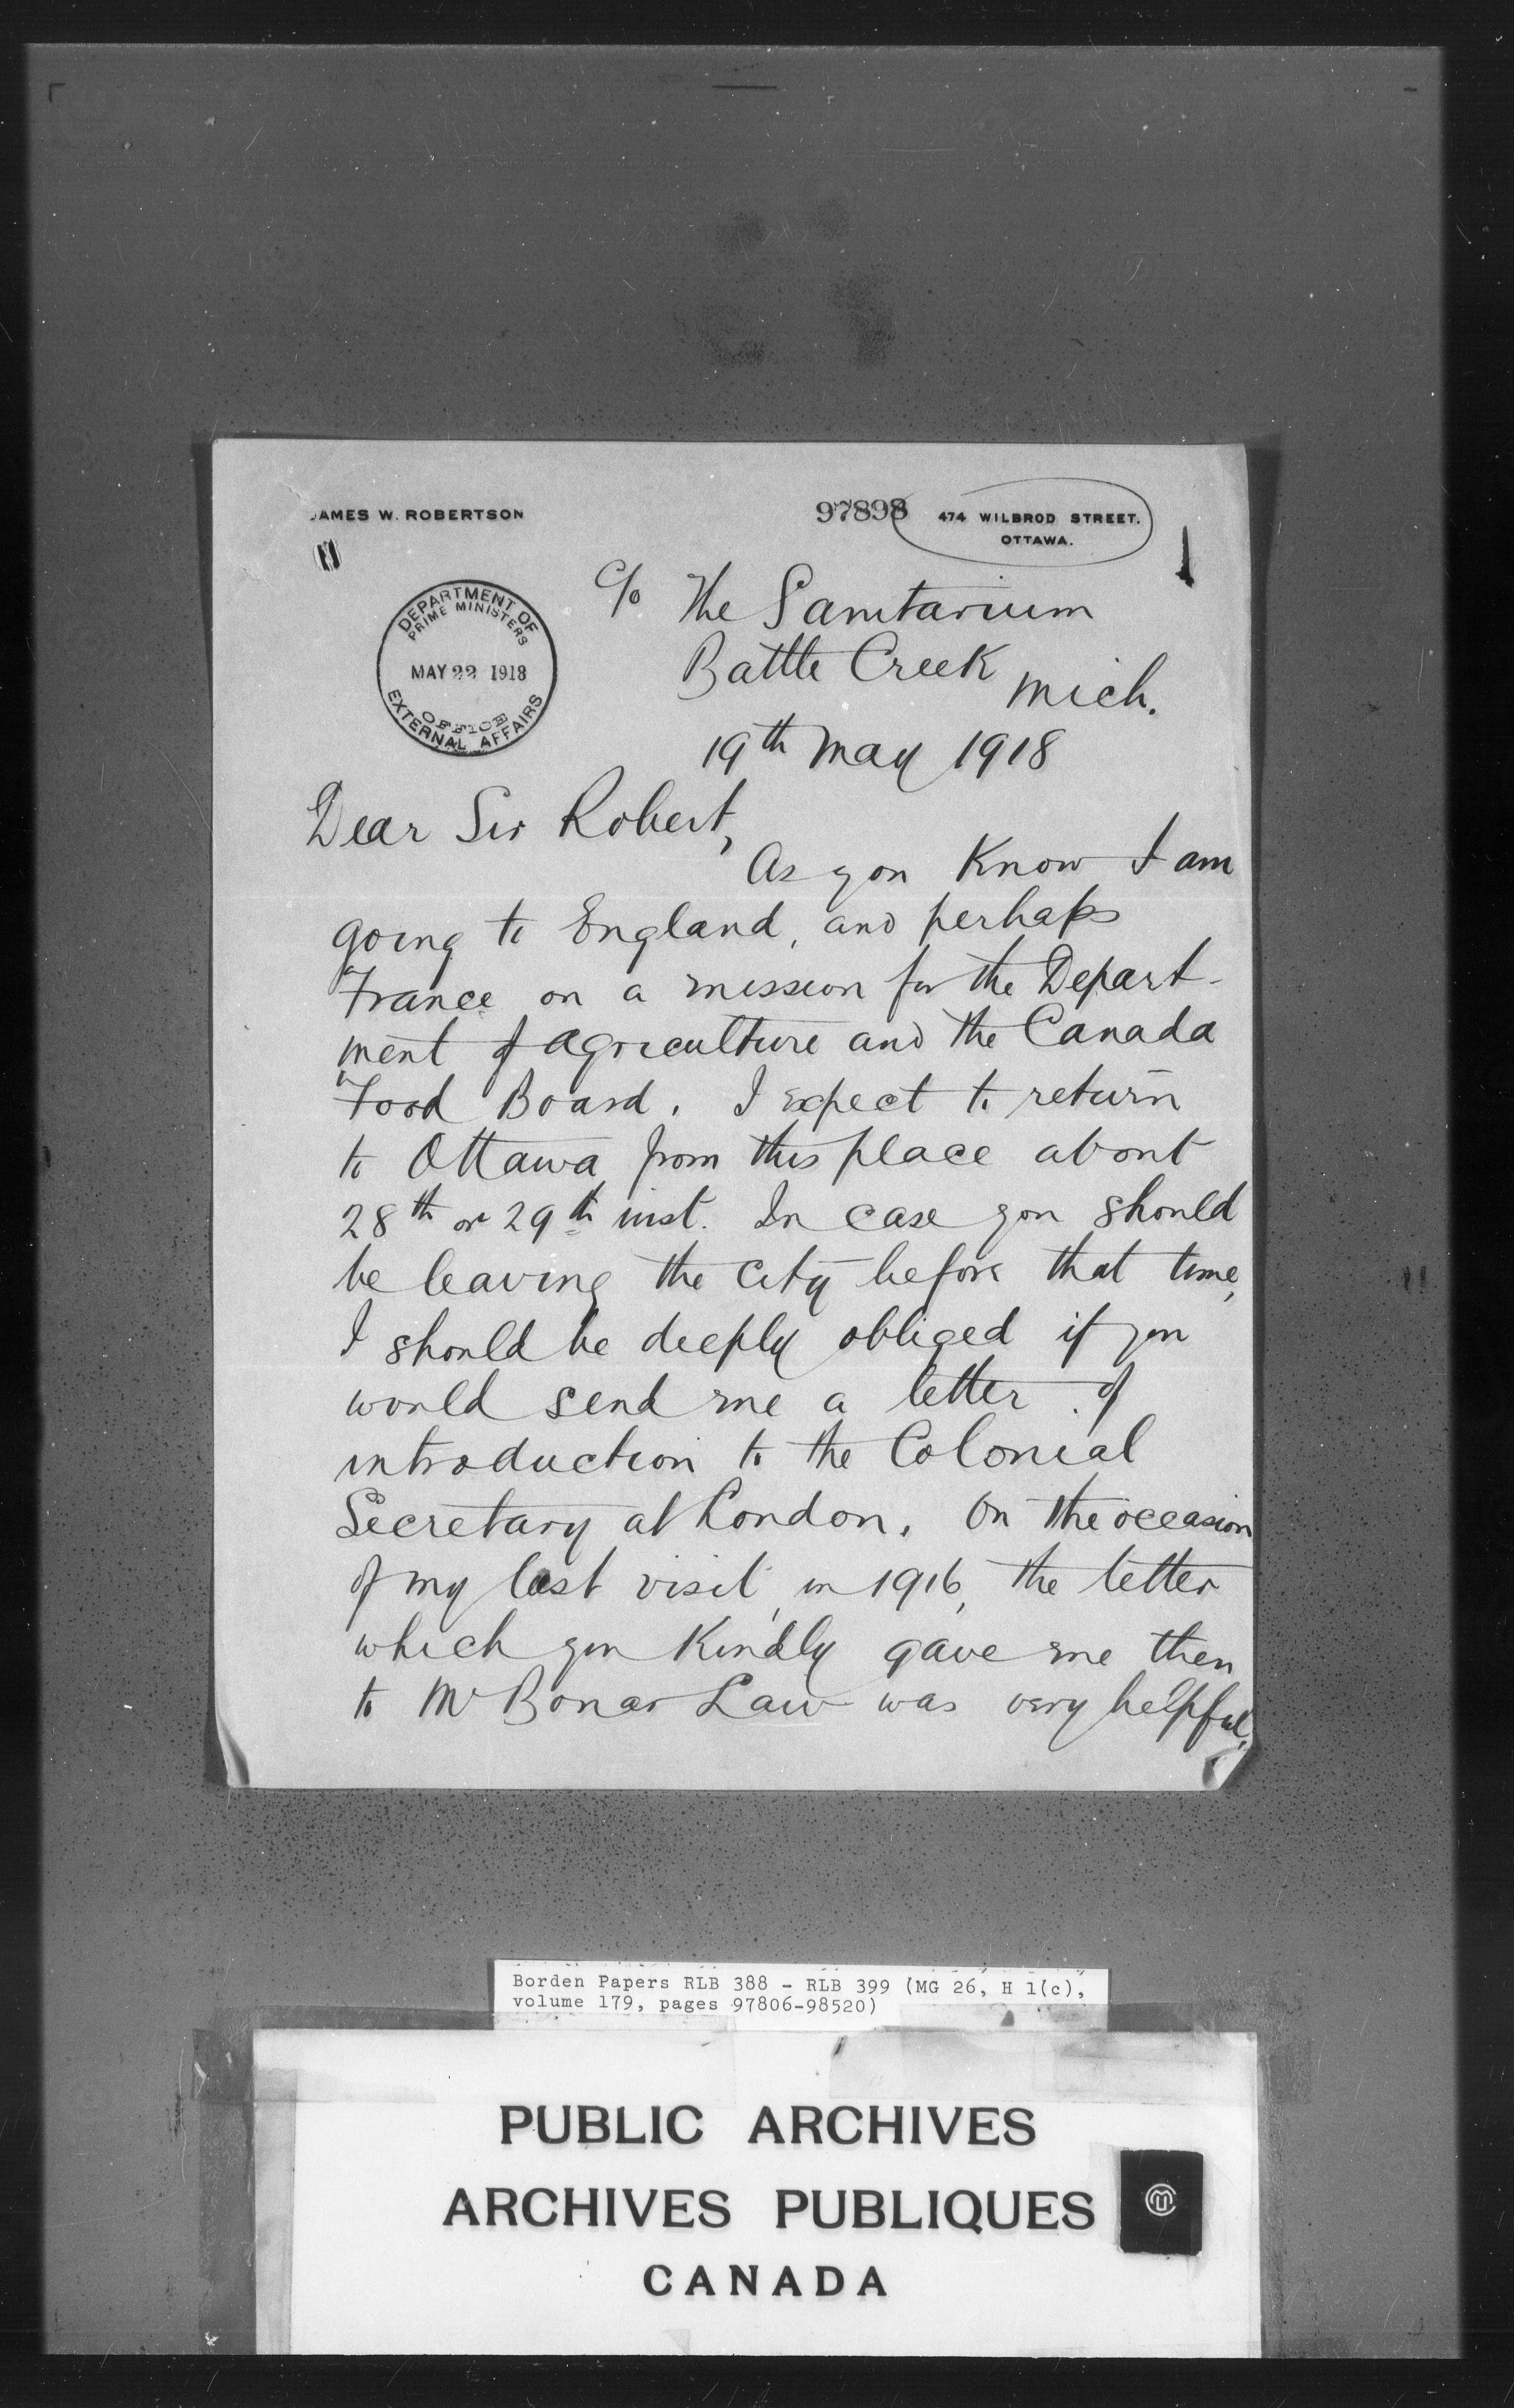 JAMES W. ROBERTSON
97898
474 WILBROD STREET.
OTTAWA.
DEPARTMENT OF
PRIME MINISTERS
MAY 22 1918
OFFICE
EXTERNAL AFFAIRS
c/o The Sanitarium
Battle Creek Mich.
19th May 1918
Dear Sir Robert,
As you know I am
going to England, and perhaps
France on a mission for the Depart-
ment of Agriculture and the Canada
Food Board. I expect to return
to Ottawa from this place about
28th or 29th inst. In case you should
be leaving the city before that time,
I should be deeply obliged if you
would send me a letter of
introduction to the Colonial
Secretary at London. On the occasion
of my last visit, in 1916, the letter
which you kindly gave me then
to Mr Bonar Law was very helpful.
Borden Papers RLB 388 - RLB 399 (MG 26, H 1(c),
volume 179, pages 97806-98520)
PUBLIC ARCHIVES
ARCHIVES PUBLIQUES
CANADA